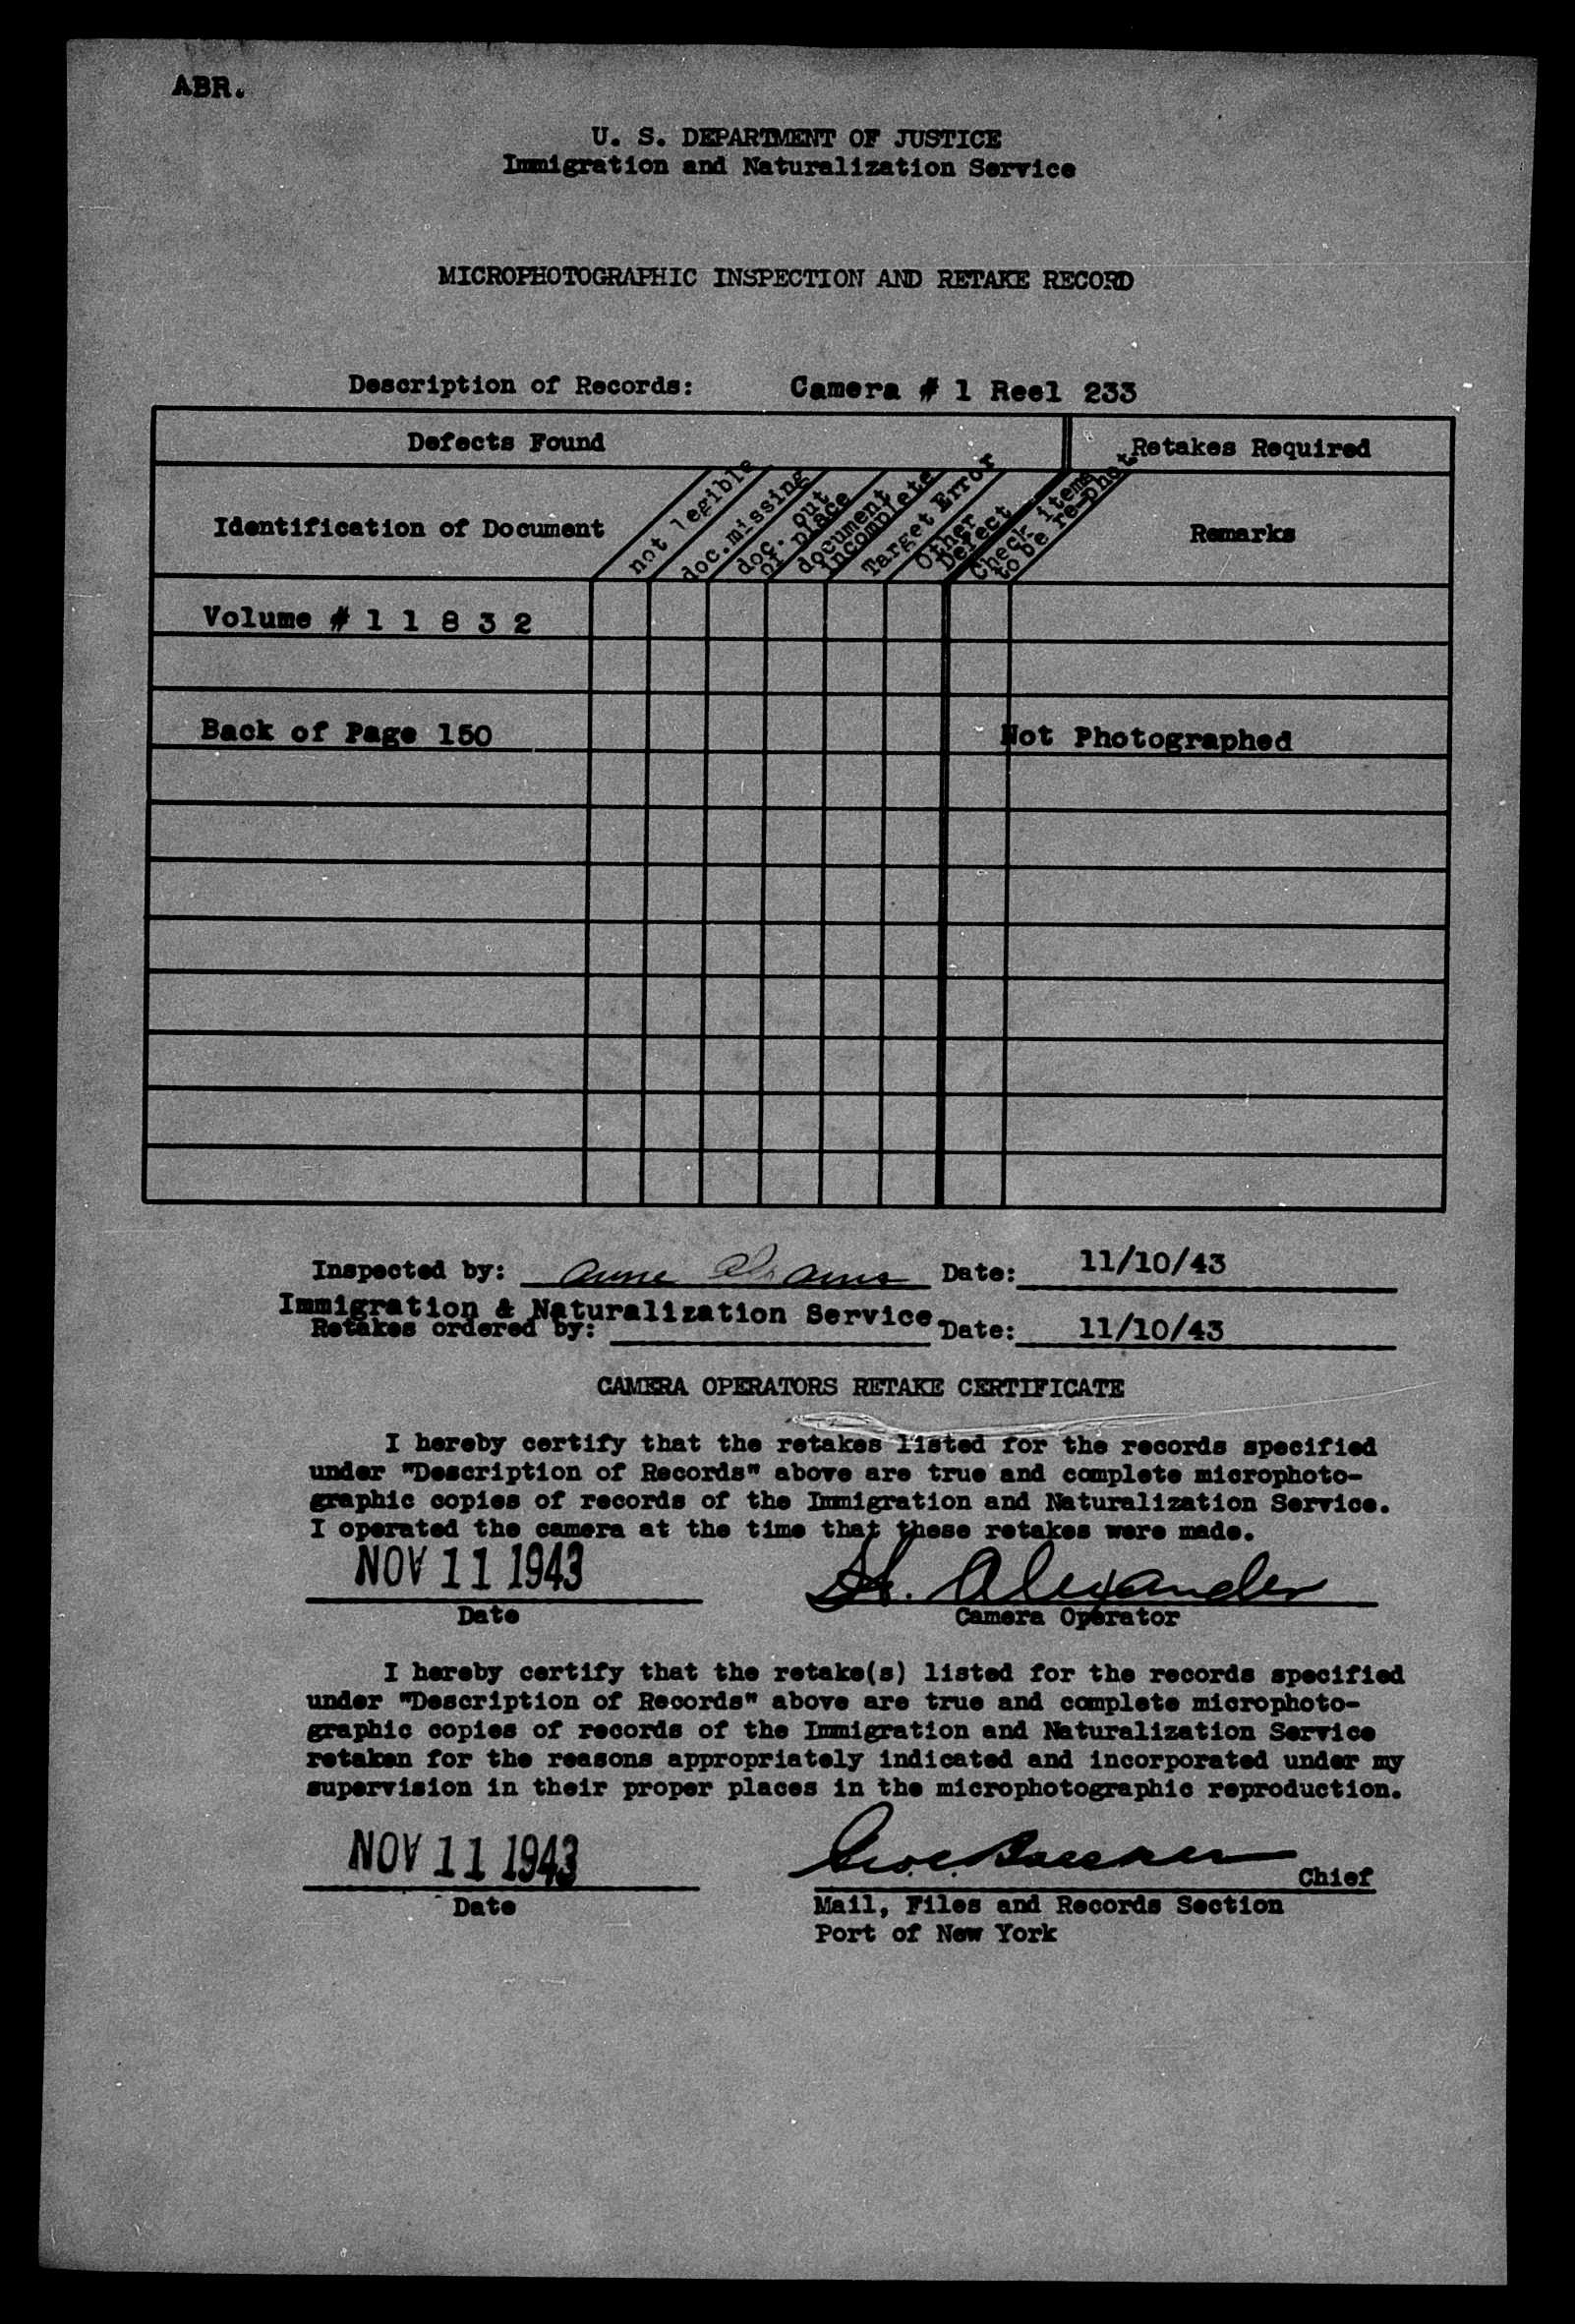 ABR.
U. S. DEPARTMENT OF JUSTICE
Immigration and Naturalization Service
MICROPHOTOGRAPHIC INSPECTION AND RETAKE RECORD
Description of Records: Camera # 1 Reel 233
Defects Found
Retakes Required
Identification of Document
not legible
doc. missing
doc. out
of place
document
incomplete
Target Error
Other
Defect
Check items
to be re-phot
Remarks
Volume # 1 1 8 3 2
Back of Page 150 Not Photographed
Inspected by: Anne Date: 11/10/43
Immigration & Naturalization Service
Retakes ordered by: Date: 11/10/43
CAMERA OPERATORS RETAKE CERTIFICATE
I hereby certify that the retakes listed for the records specified
under "Description of Records" above are true and complete microphoto-
graphic copies of records of the Immigration and Naturalization Service.
I operated the camera at the time that these retakes were made.
NOV 11 1943 Alexander
Date Camera Operator
I hereby certify that the retake(s) listed for the records specified
under "Description of Records" above are true and complete microphoto-
graphic copies of records of the Immigration and Naturalization Service
retaken for the reasons appropriately indicated and incorporated under my
supervision in their proper places in the microphotographic reproduction.
NOV 11 1943 Chief
Date Mail, Files and Records Section
Port of New York